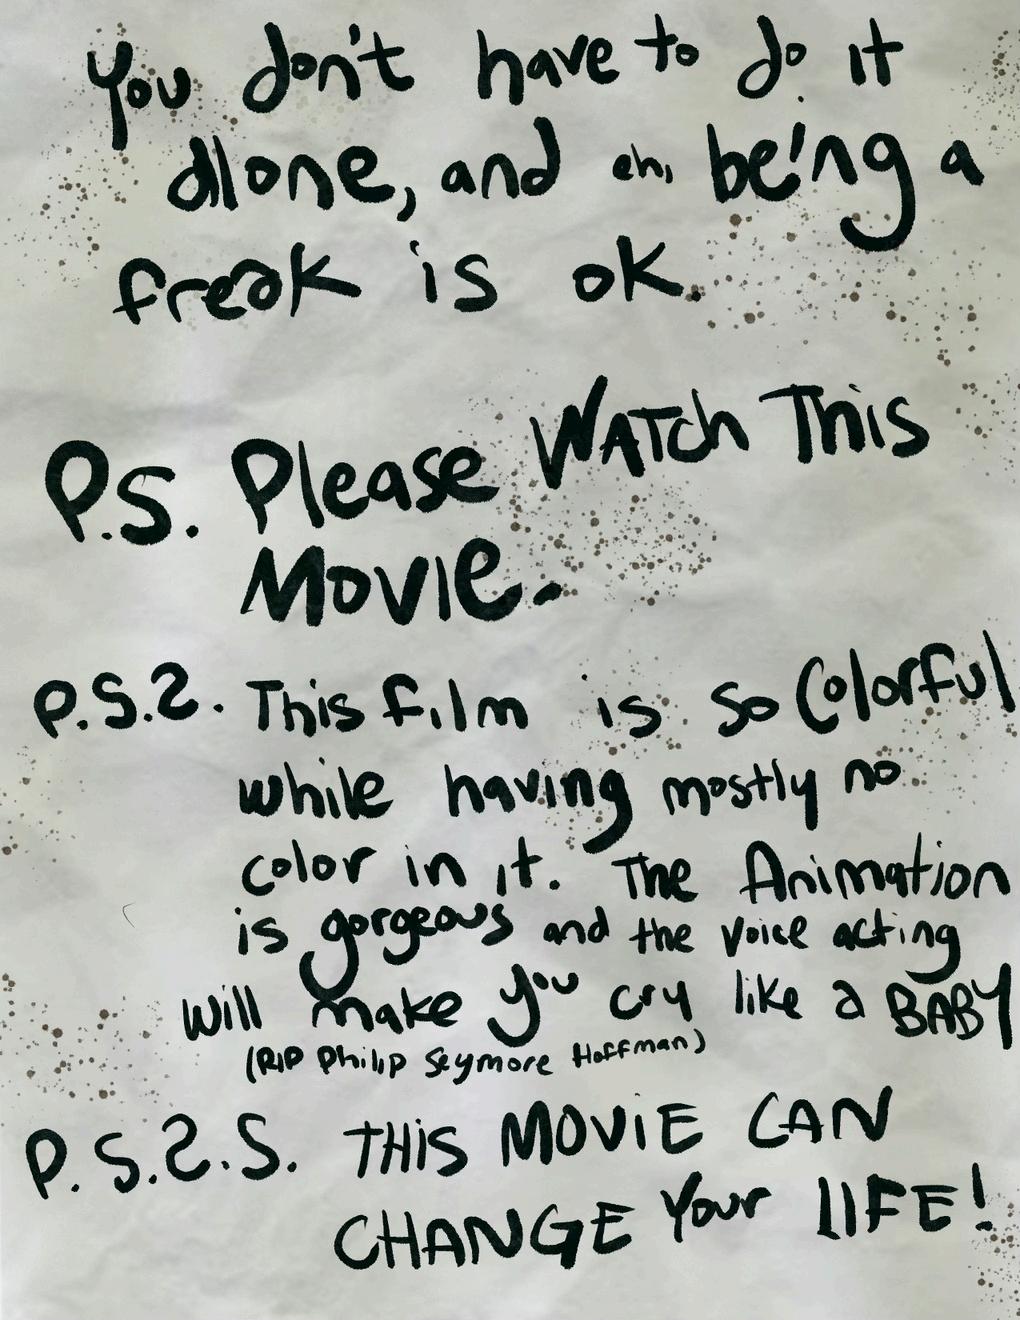 You don't have to do it
alone, and eh, being a
freak is ok.
P.S. Please WATCh This
MOVIE.
P.S.2. This film is so Colorful
while having mostly no
color in it. The Animation
is gorgeous and the voice acting
will make you cry like a BABY
(RIP Philip Seymore Hoffman)
P.S.2.S. THiS MOViE CAN
CHANGE Your LIFE!